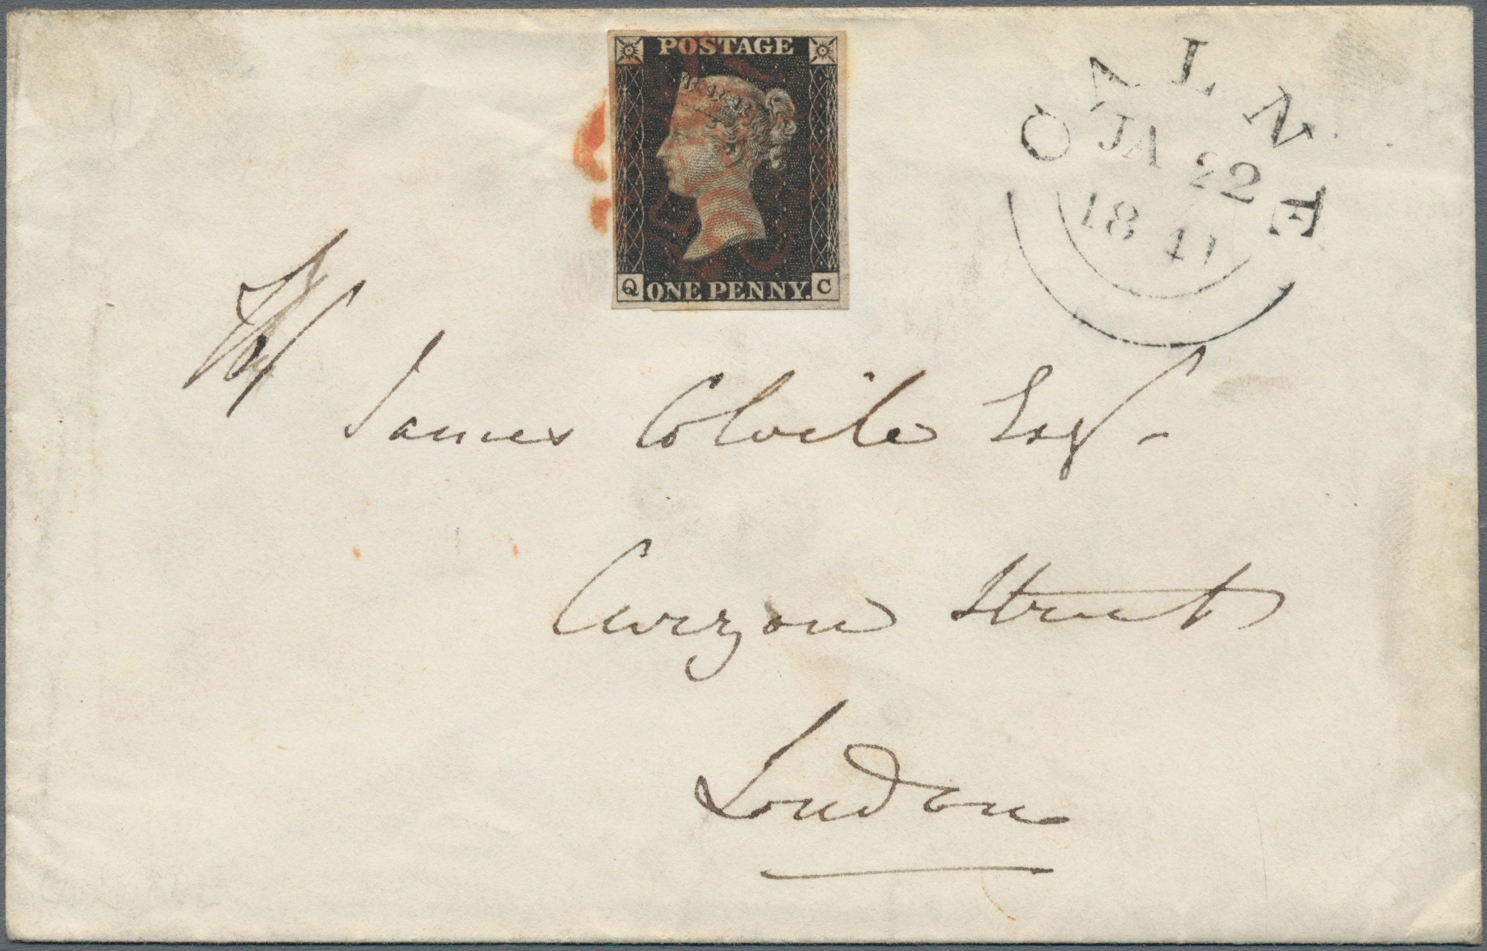 POSTAGE
Q ONE PENNY. C
CALNE
JA 22
1841
James Colvile Esq
Curzon Street
London